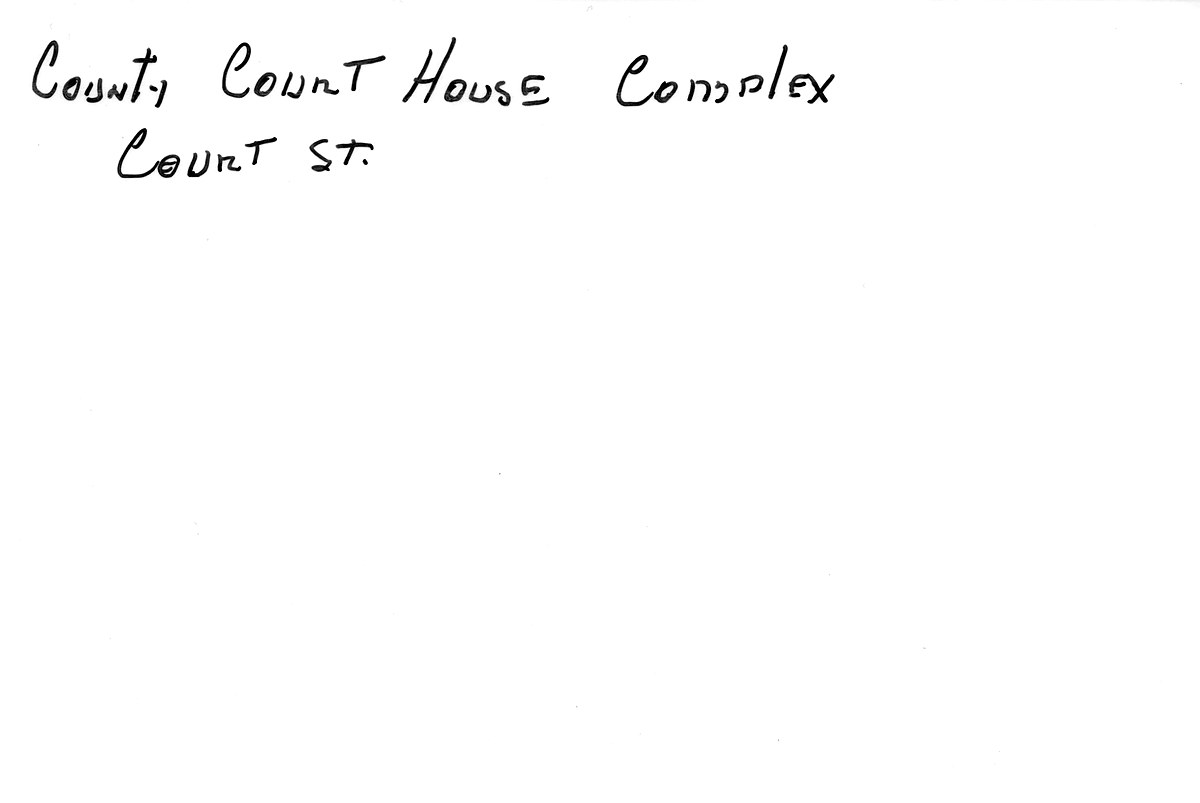 County Court House Complex
Court St.